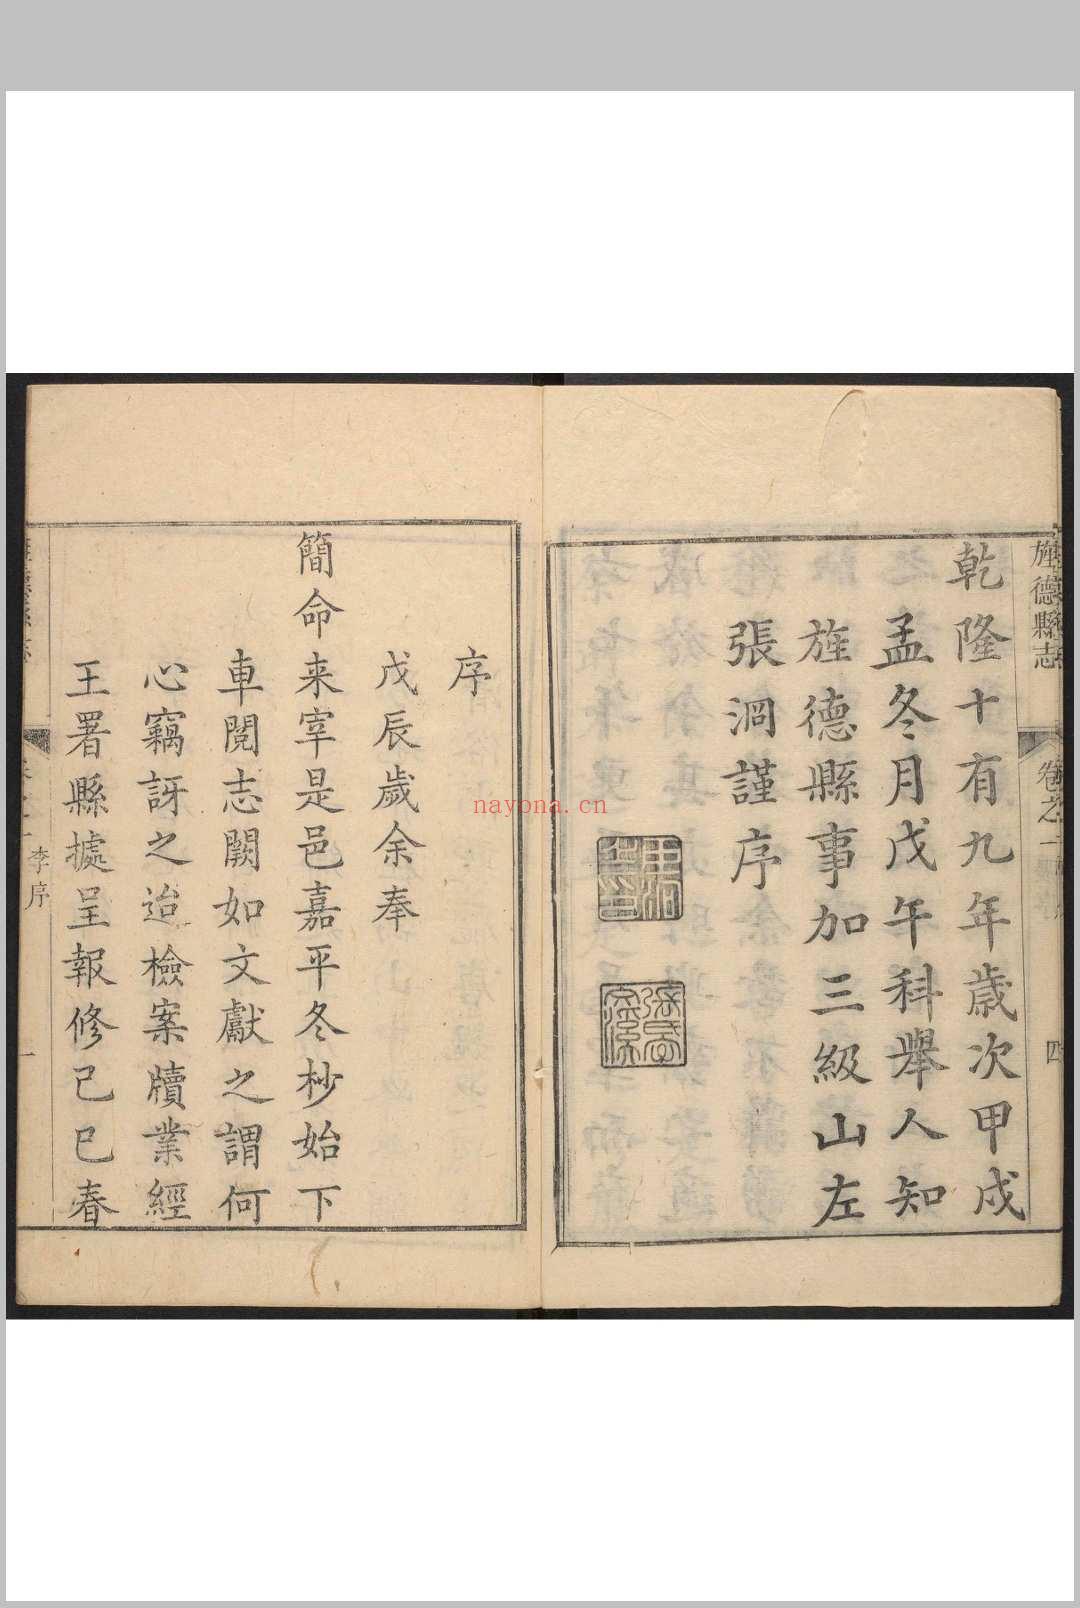 旌德縣志
卷之一
四
乾隆十有九年歲次甲戌
孟冬月戊午科舉人知
旌德縣事加三級山左
張洞謹序
序
戊辰歲余奉
簡命来宰是邑嘉平冬杪始下
車閱志闕如文獻之謂何
心竊訝之迨檢案牘業經
王署縣據呈報修己巳春
李序
一
nayona.cn